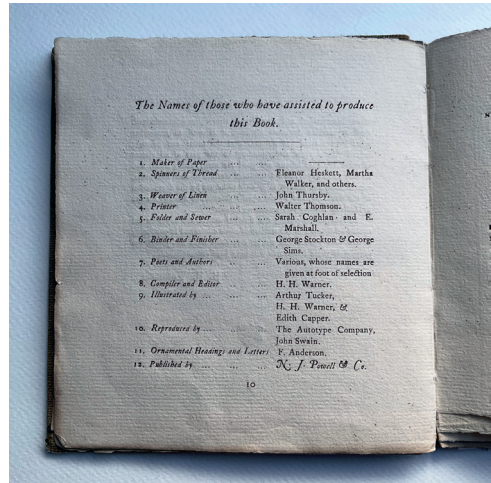 The Names of those who have assisted to produce
this Book.
1. Maker of Paper ... ... ———
2. Spinners of Thread ... ... Eleanor Heskett, Martha
Walker, and others.
3. Weaver of Linen ... ... John Thursby.
4. Printer ... ... ... Walter Thomson.
5. Folder and Sewer ... ... Sarah Coghlan and E.
Marshall.
6. Binder and Finisher ... ... George Stockton & George
Sims.
7. Poets and Authors ... ... Various, whose names are
given at foot of selection
8. Compiler and Editor ... ... H. H. Warner.
9. Illustrated by ... ... ... Arthur Tucker,
H. H. Warner, &
Edith Capper.
10. Reproduced by ... ... ... The Autotype Company,
John Swain.
11. Ornamental Headings and Letters F. Anderson.
12. Published by ... ... ... N. J. Powell & Co.
10
N